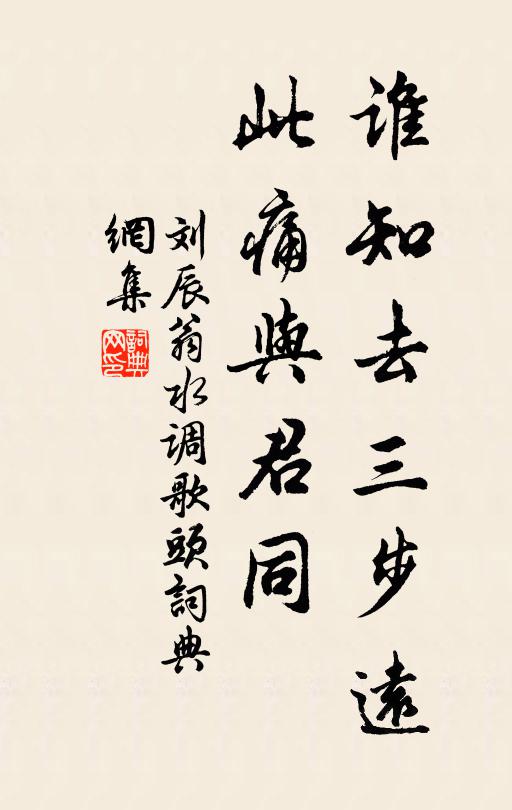 谁知去三步遠
此痛與君同
刘辰翁水调歌頭詞典
網集
詞典
网印